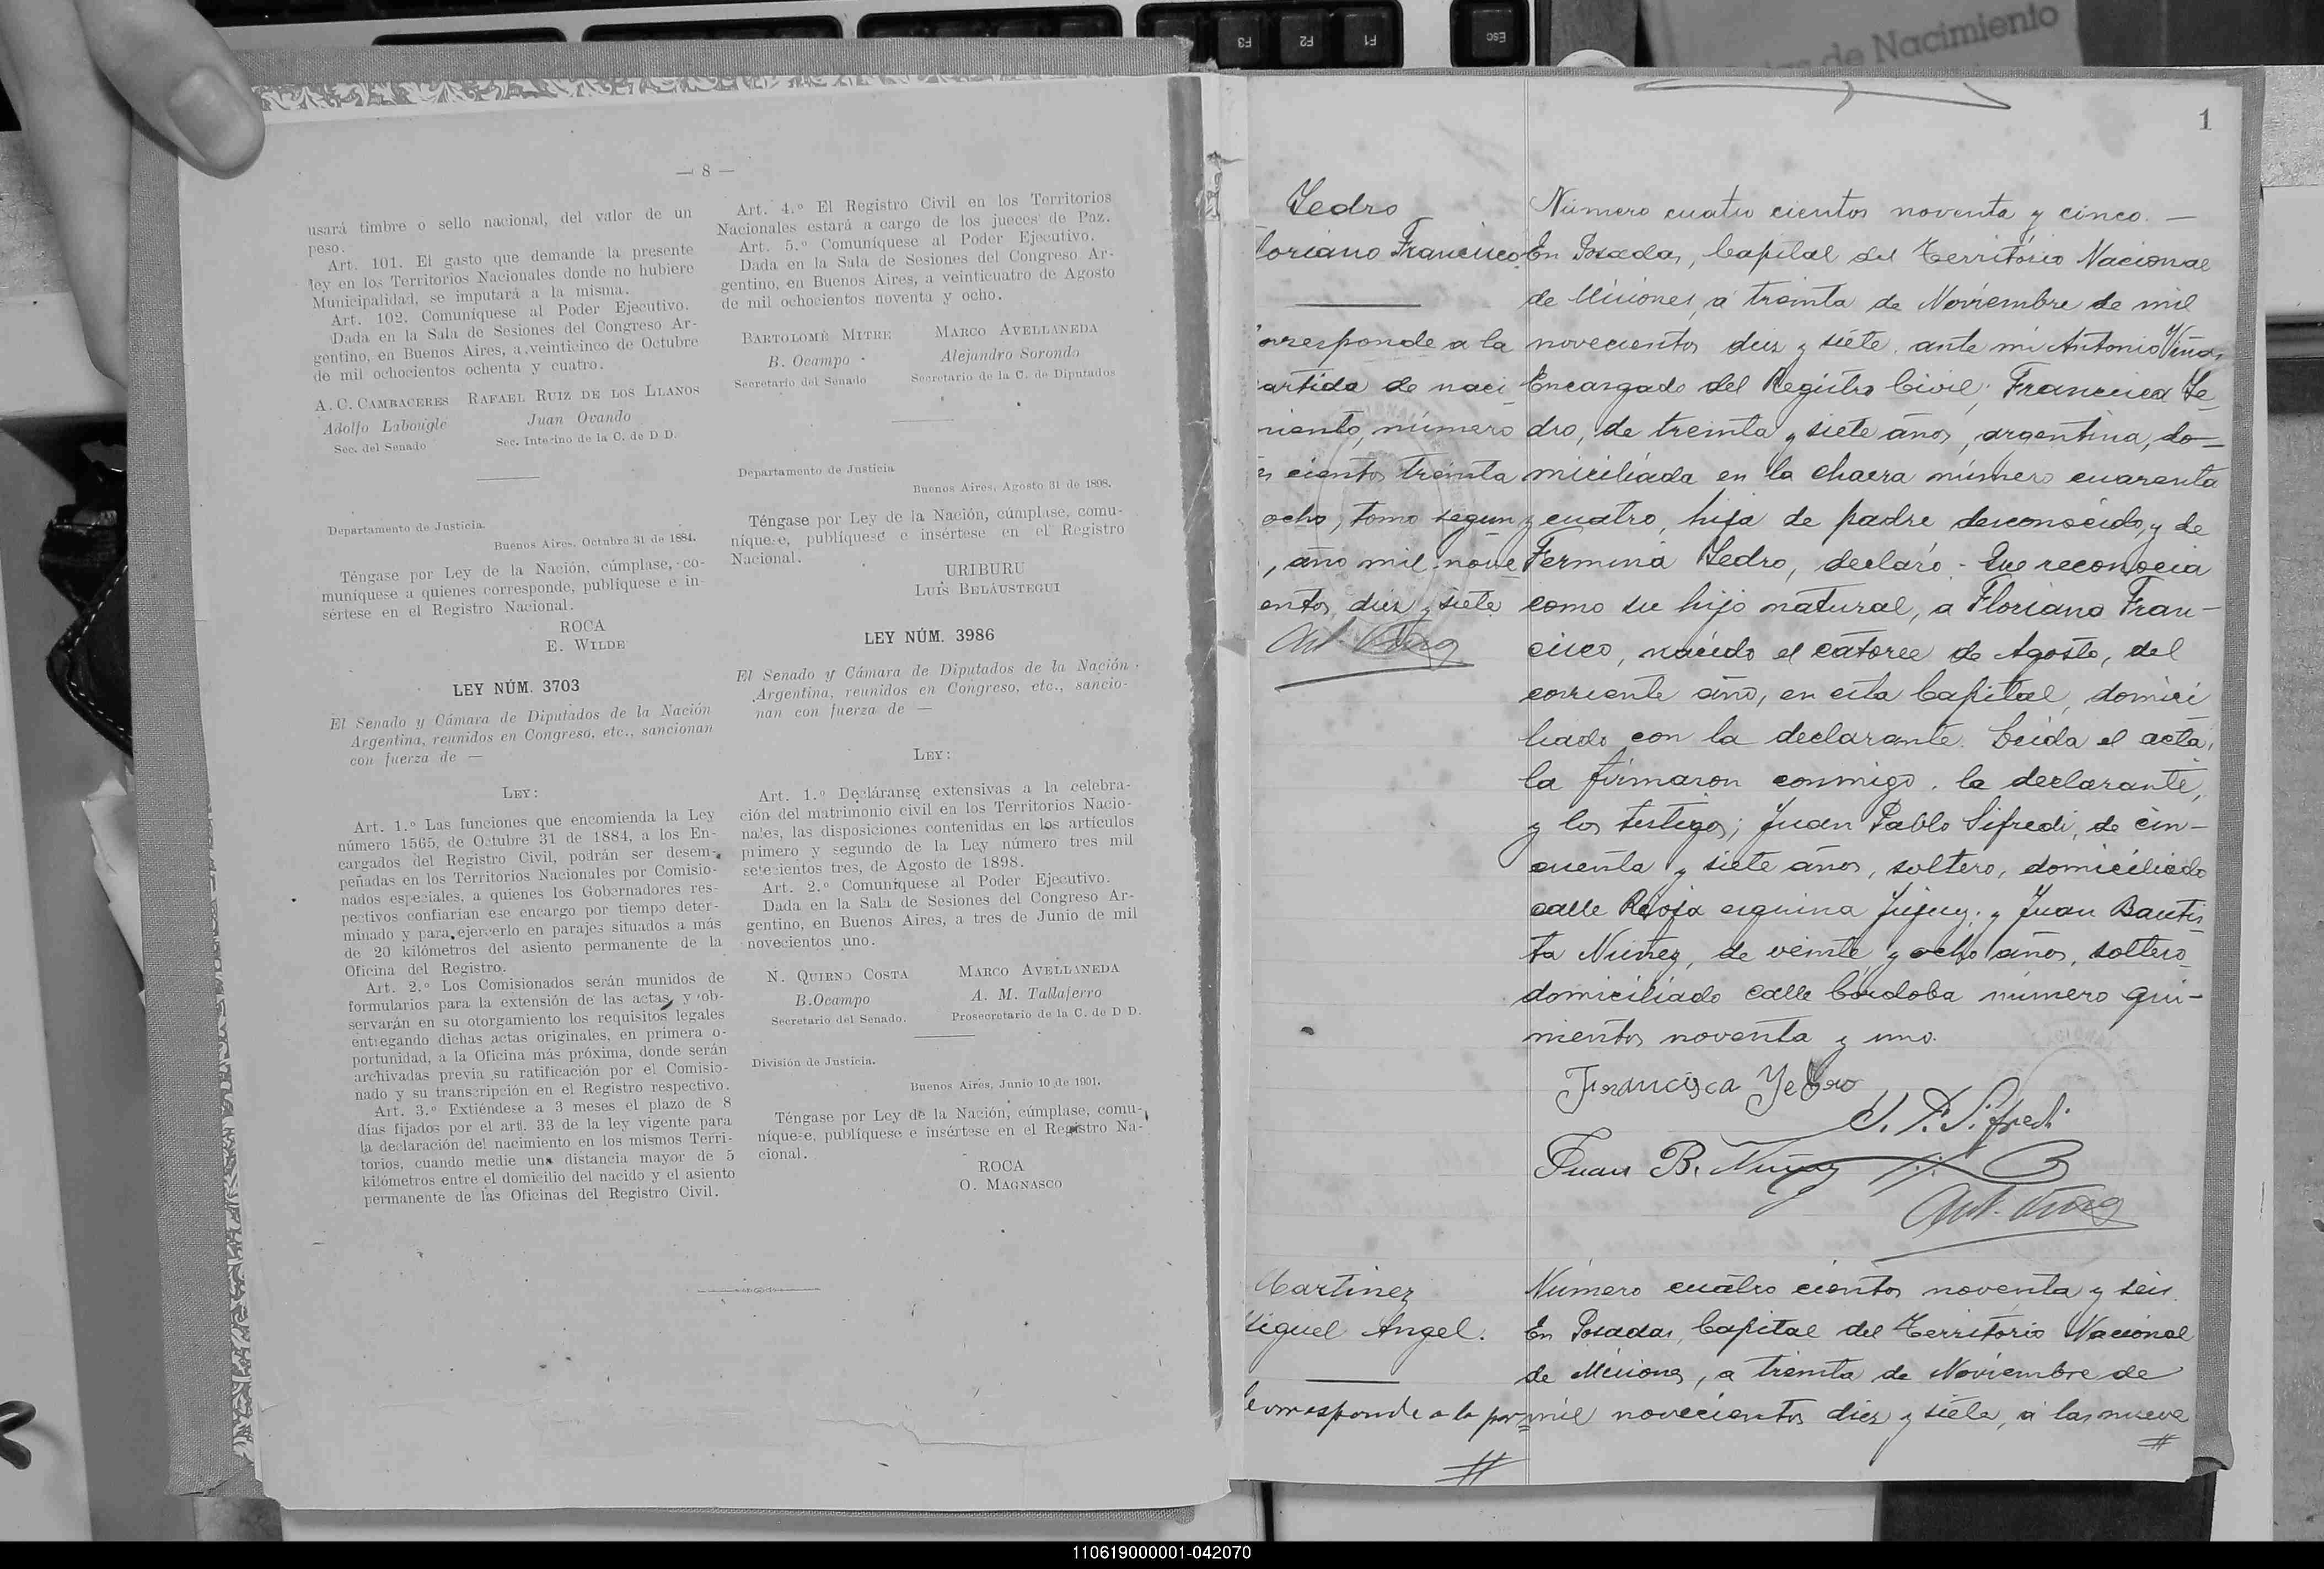 F3
F2
F1
Esc
de Nacimiento
— 8 —
usará timbre o sello nacional, del valor de un
peso.
Art. 101. El gasto que demande la presente
ley en los Territorios Nacionales donde no hubiere
Municipalidad, se imputará a la misma.
Art. 102. Comuníquese al Poder Ejecutivo.
Dada en la Sala de Sesiones del Congreso Ar-
gentino, en Buenos Aires, a veinticinco de Octubre
de mil ochocientos ochenta y cuatro.
A. C. CAMBACERES RAFAEL RUIZ DE LOS LLANOS
Adolfo Labougle Juan Ovando
Sec. del Senado Sec. Interino de la C. de D D.
Departamento de Justicia.
Buenos Aires, Octubre 31 de 1884.
Téngase por Ley de la Nación, cúmplase, co-
muníquese a quienes corresponde, publíquese e in-
sértese en el Registro Nacional.
ROCA
E. WILDE
LEY NÚM. 3703
El Senado y Cámara de Diputados de la Nación
Argentina, reunidos en Congreso, etc., sancionan
con fuerza de —
LEY:
Art. 1.º Las funciones que encomienda la Ley
número 1565, de Octubre 31 de 1884, a los En-
cargados del Registro Civil, podrán ser desem-
peñadas en los Territorios Nacionales por Comisio-
nados especiales, a quienes los Gobernadores res-
pectivos confiarían ese encargo por tiempo deter-
minado y para ejercerlo en parajes situados a más
de 20 kilómetros del asiento permanente de la
Oficina del Registro.
Art. 2.º Los Comisionados serán munidos de
formularios para la extensión de las actas y ob-
servarán en su otorgamiento los requisitos legales
entregando dichas actas originales, en primera o-
portunidad, a la Oficina más próxima, donde serán
archivadas previa su ratificación por el Comisio-
nado y su transcripción en el Registro respectivo.
Art. 3.º Extiéndese a 3 meses el plazo de 8
días fijados por el art. 33 de la ley vigente para
la declaración del nacimiento en los mismos Terri-
torios, cuando medie una distancia mayor de 5
kilómetros entre el domicilio del nacido y el asiento
permanente de las Oficinas del Registro Civil.
Art. 4.º El Registro Civil en los Territorios
Nacionales estará a cargo de los jueces de Paz.
Art. 5.º Comuníquese al Poder Ejecutivo.
Dada en la Sala de Sesiones del Congreso Ar-
gentino, en Buenos Aires, a veinticuatro de Agosto
de mil ochocientos noventa y ocho.
BARTOLOMÉ MITRE MARCO AVELLANEDA
B. Ocampo Alejandro Sorondo
Secretario del Senado Secretario de la C. de Diputados
Departamento de Justicia
Buenos Aires, Agosto 31 de 1898.
Téngase por Ley de la Nación, cúmplase, comu-
níquese, publíquese e insértese en el Registro
Nacional.
URIBURU
LUÍS BELÁUSTEGUI
LEY NÚM. 3986
El Senado y Cámara de Diputados de la Nación
Argentina, reunidos en Congreso, etc., sancio-
nan con fuerza de —
LEY:
Art. 1.º Decláranse extensivas a la celebra-
ción del matrimonio civil en los Territorios Nacio-
nales, las disposiciones contenidas en los artículos
primero y segundo de la Ley número tres mil
setecientos tres, de Agosto de 1898.
Art. 2.º Comuníquese al Poder Ejecutivo.
Dada en la Sala de Sesiones del Congreso Ar-
gentino, en Buenos Aires, a tres de Junio de mil
novecientos uno.
N. QUIRNO COSTA MARCO AVELLANEDA
B. Ocampo A. M. Tallaferro
Secretario del Senado. Prosecretario de la C. de D D.
División de Justicia.
Buenos Aires, Junio 10 de 1901.
Téngase por Ley de la Nación, cúmplase, comu-
níquese, publíquese e insértese en el Registro Na-
cional.
ROCA
O. MAGNASCO
1
Yedro
loriano Francisco
orresponde a la
artida de naci-
miento, número
s ciento treinta
ocho, tomo segun
, año mil nove
entos diez y siete
Ant. Viñas
Número cuatro cientos noventa y cinco. —
En Posadas, Capital del Territorio Nacional
de Misiones, a treinta de Noviembre de mil
novecientos diez y siete, ante mí Antonio Viñas,
Encargado del Registro Civil, Francisca Ye-
dro, de treinta y siete años, argentina, do-
miciliada en la chacra número cuarenta
y cuatro, hija de padre desconocido, y de
Fermina Yedro, declaró - Que reconocía
como su hijo natural, a Floriano Fran-
cisco, nacido el catorce de Agosto, del
corriente año, en esta Capital, domici
liado con la declarante. Leída el acta,
la firmaron conmigo, la declarante,
y los testigos; Juan Pablo Sifredi, de cin-
cuenta y siete años, soltero, domiciliado
calle Rioja esquina Jujuy; y Juan Bautis-
ta Nuñez, de veinte y ocho años, soltero
domiciliado calle Córdoba número qui-
nientos noventa y uno.
Francisca Yedro
J. P. Sifredi
Juan B. Nuñez
Ant. Viñas
Martinez
Miguel Angel.
Corresponde a la par=
Número cuatro cientos noventa y seis.
En Posadas, Capital del Territorio Nacional
de Misiones, a treinta de Noviembre de
mil novecientos diez y siete, a las nueve
110619000001-042070